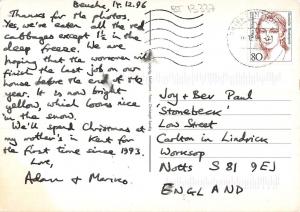 Beucha, 17.12.96
Thanks for the photos.
Yes, we've eaten all the red
cabbages except 1½ in the
deep freeze. We are
hoping that the workmen will
finish the last job on our
house before the end of the
year. It is now bright
yellow, which looks nice
in the snow.
We'll spend Christmas at
my mother's in Kent for
the first time since 1993.
Love,
Adam & Marico
80
Joy & Bev Paul
'Stonebeck'
Low Street
Carlton in Lindrick
Worksop
Notts S81 9EJ
ENGLAND